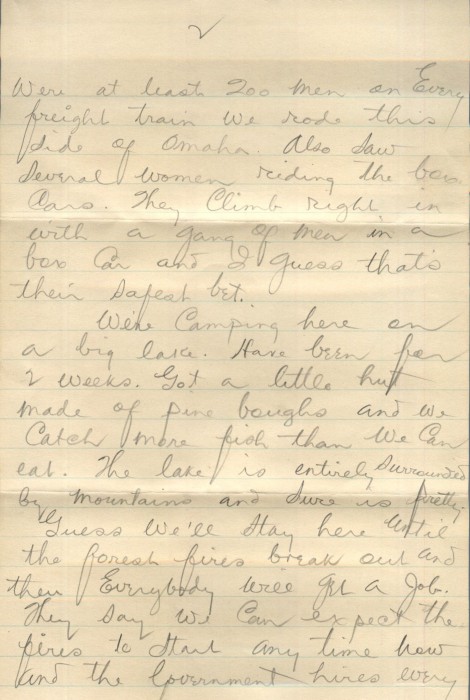 2
Were at least 200 men on Every
freight train we rode this
side of Omaha. Also saw
several women riding the box
Cars. They Climb right in
with a gang of men in a
box Car and I guess that's
their safest bet.
We're Camping here on
a big lake. Have been for
2 weeks. Got a little hut
made of pine boughs and we
Catch more fish than We Can
eat. The lake is entirely surrounded
by mountains and sure is pretty.
Guess We'll stay here until
the forest fires break out and
then Everybody will get a Job.
They say we Can expect the
fires to start any time now
and the Government hires every